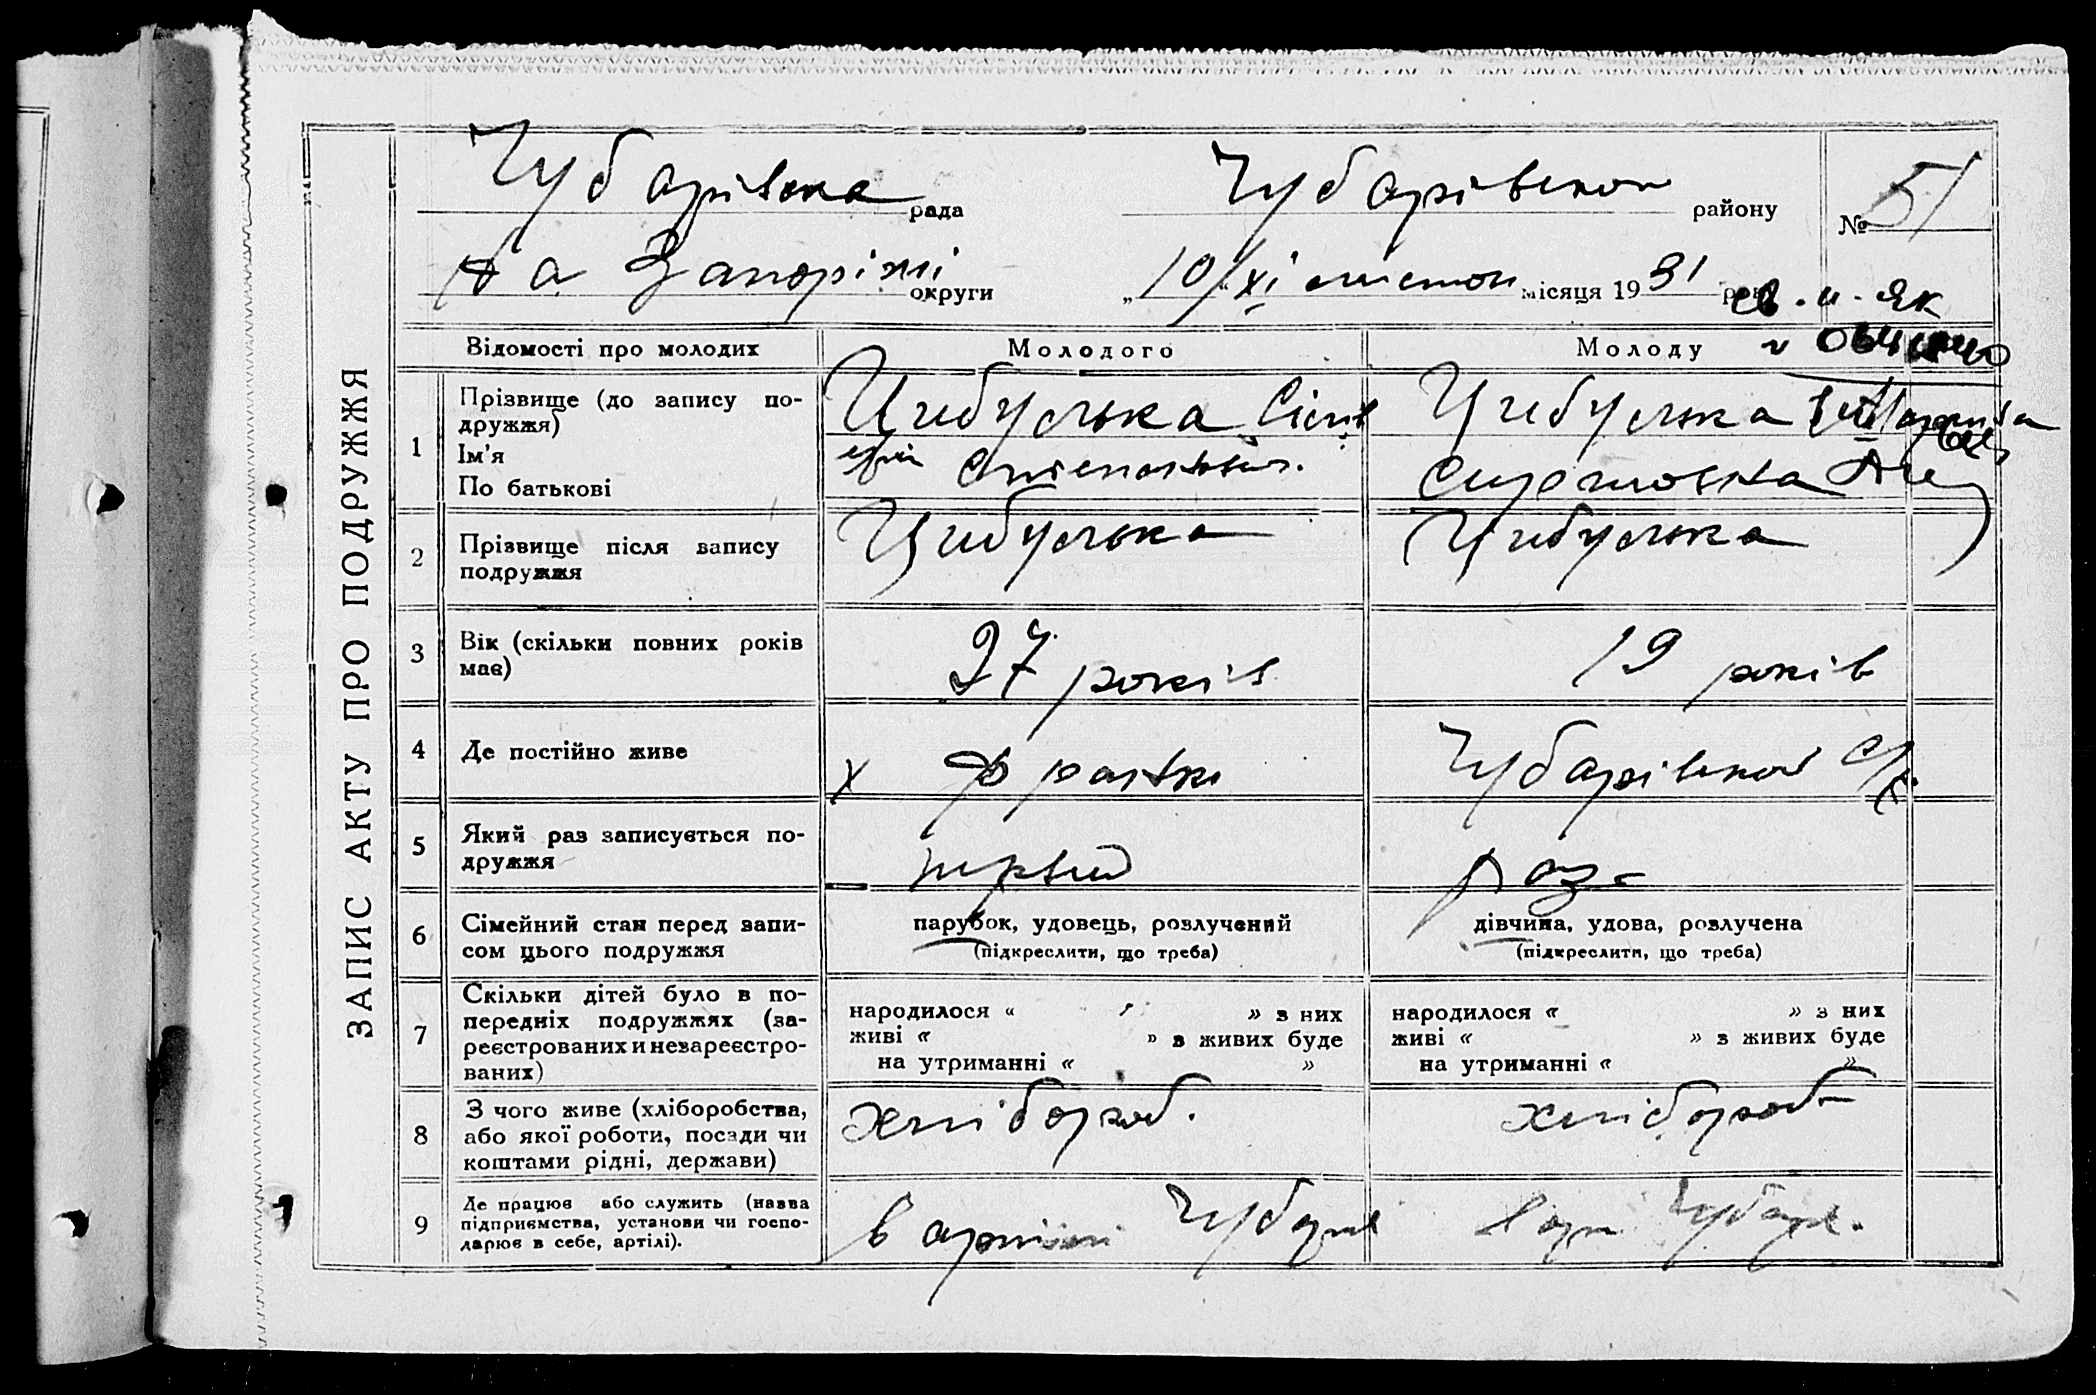 ЗАПИС АКТУ ПРО ПОДРУЖЖЯ
Чубарівська рада Чубарівськой району № 51
Запоріжі округи „10/XI листоп місяця 1931
Відомості про молодих Молодого Молоду
1 Прізвище (до запису по-
дружжя)
Ім'я
По батькові
Цибулька
Цибулька
2 Прізвище після запису
подружжя
Цибулька
Цибулька
3 Вік (скільки повних років
має)
27 років
19 років
4 Де постійно живе
Чубарівськой с/р.
5 Який раз записується по-
дружжя
первий
раз
6 Сімейний стан перед запи-
сом цього подружжя
парубок, удовець, розлучений
(підкреслити, що треба)
дівчина, удова, розлучена
(підкреслити, що треба)
7 Скільки дітей було в по-
передніх подружжях (за-
реєстрованих и незареєстро-
ваних)
народилося « » з них
живі « » з живих буде
на утриманні « »
народилося « » з них
живі « » з живих буде
на утриманні « »
8 З чого живе (хліборобства,
або якої роботи, посади чи
коштами рідні, держави)
хлібороб.
хлібороб
9 Де працює або служить (назва
підприємства, установи чи госпо-
дарює в себе, артілі).
в артілі Чубарів
в арт Чубарів.